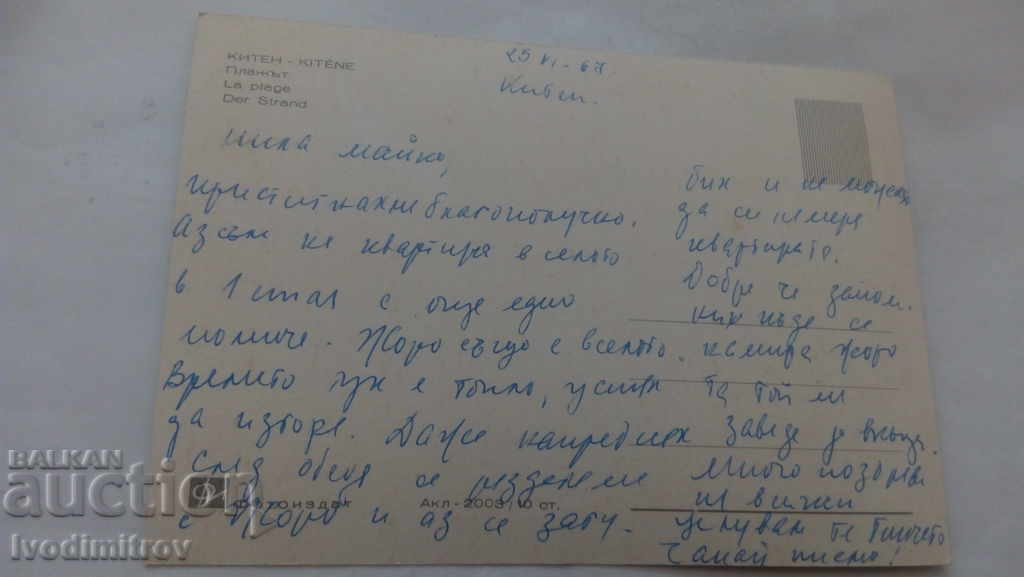 КИТЕН - KITÈNE
Плажът
La plage
Der Strand
25 VI - 67.
Китен.
мила майко,
пристигнахме благополучно.
Аз съм на квартира в селото
в 1 стая с още едно
момиче. Жоро също е в селото.
Времето тук е топло, успях
да изгоря. Даже
след обед се разделихме
с Жоро и аз се загу-
бих и не можех
да си намеря
квартирата.
Добре че запом-
них къде се
намира Жоро
та той ме
заведе до вкъщи.
Много поздрави
на всички
целувам те
Чакай писмо!
Фотоиздат
Акл-2003 / 10 ст.
BALKAN
auction
Ivodimitrov